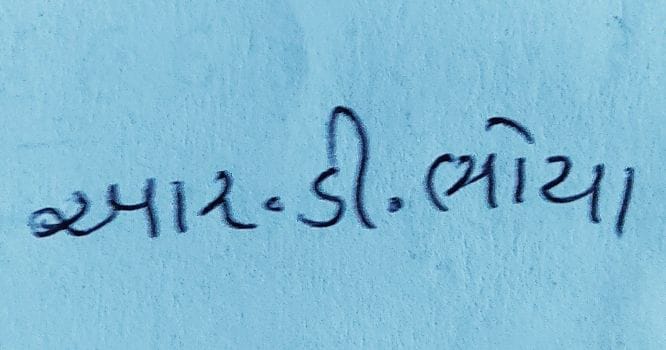 આર.ડી.ભોયા